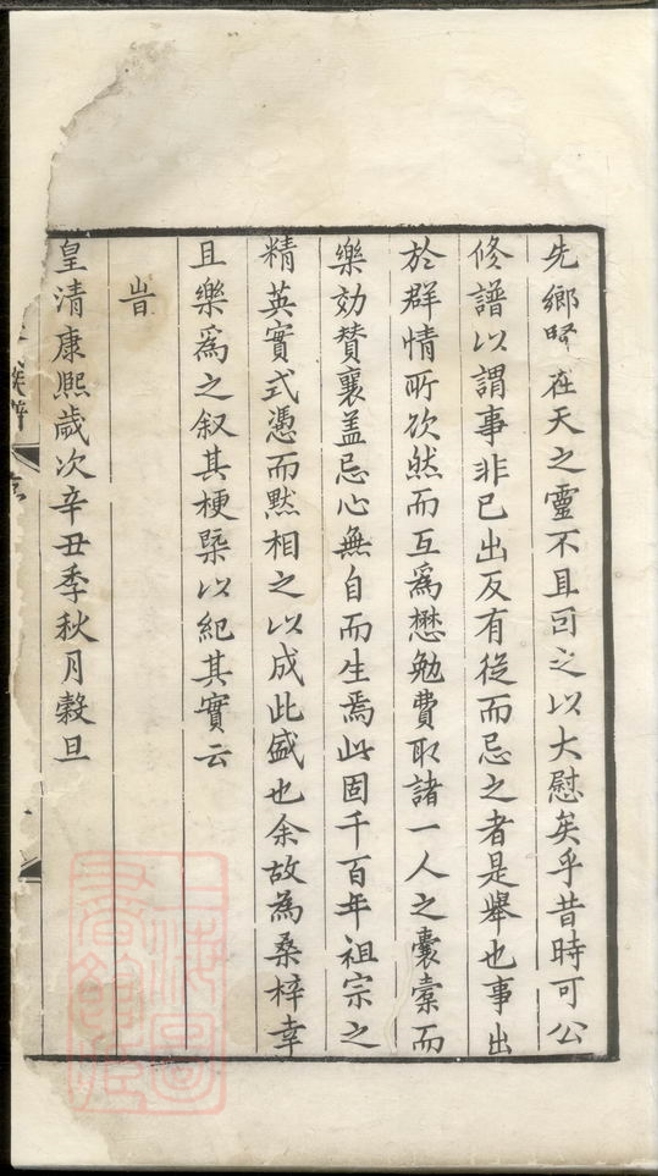 先鄉賢在天之靈不且因之以大慰矣乎昔時可公
修譜以謂事非己出反有從而忌之者是舉也事出
於群情所欣然而互爲懋勉費取諸一人之囊橐而
樂効贊襄盖忌心無自而生焉此固千百年祖宗之
精英實式憑而默相之以成此盛也余故為桑梓幸
且樂爲之叙其梗槩以紀其實云
旹
皇清康熙歲次辛丑季秋月榖旦
上海圖
書館藏